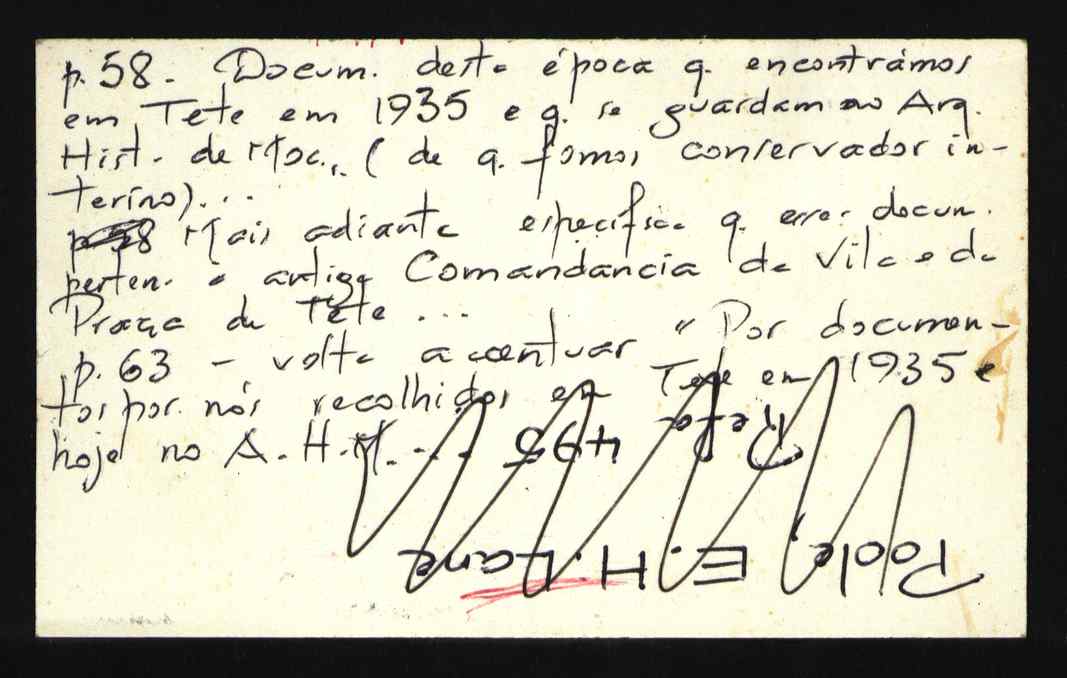 p. 58 - Docum. desta época q. encontrámos
em Tete em 1935 e q. se guardam no Arq.
Hist. de Moç., (de q. fomos conservador in-
terino)...
p. 58 Mais adiante especifica q. esses docum.
perten. à antiga Comandancia da Vila e da
Praça de Tete ...
p. 63 - volta a acentuar "Por documen-
tos por nós recolhidos em Tete em 1935 e
hoje no A. H. M. ...
Poole, E. H. Lane
Refa 495